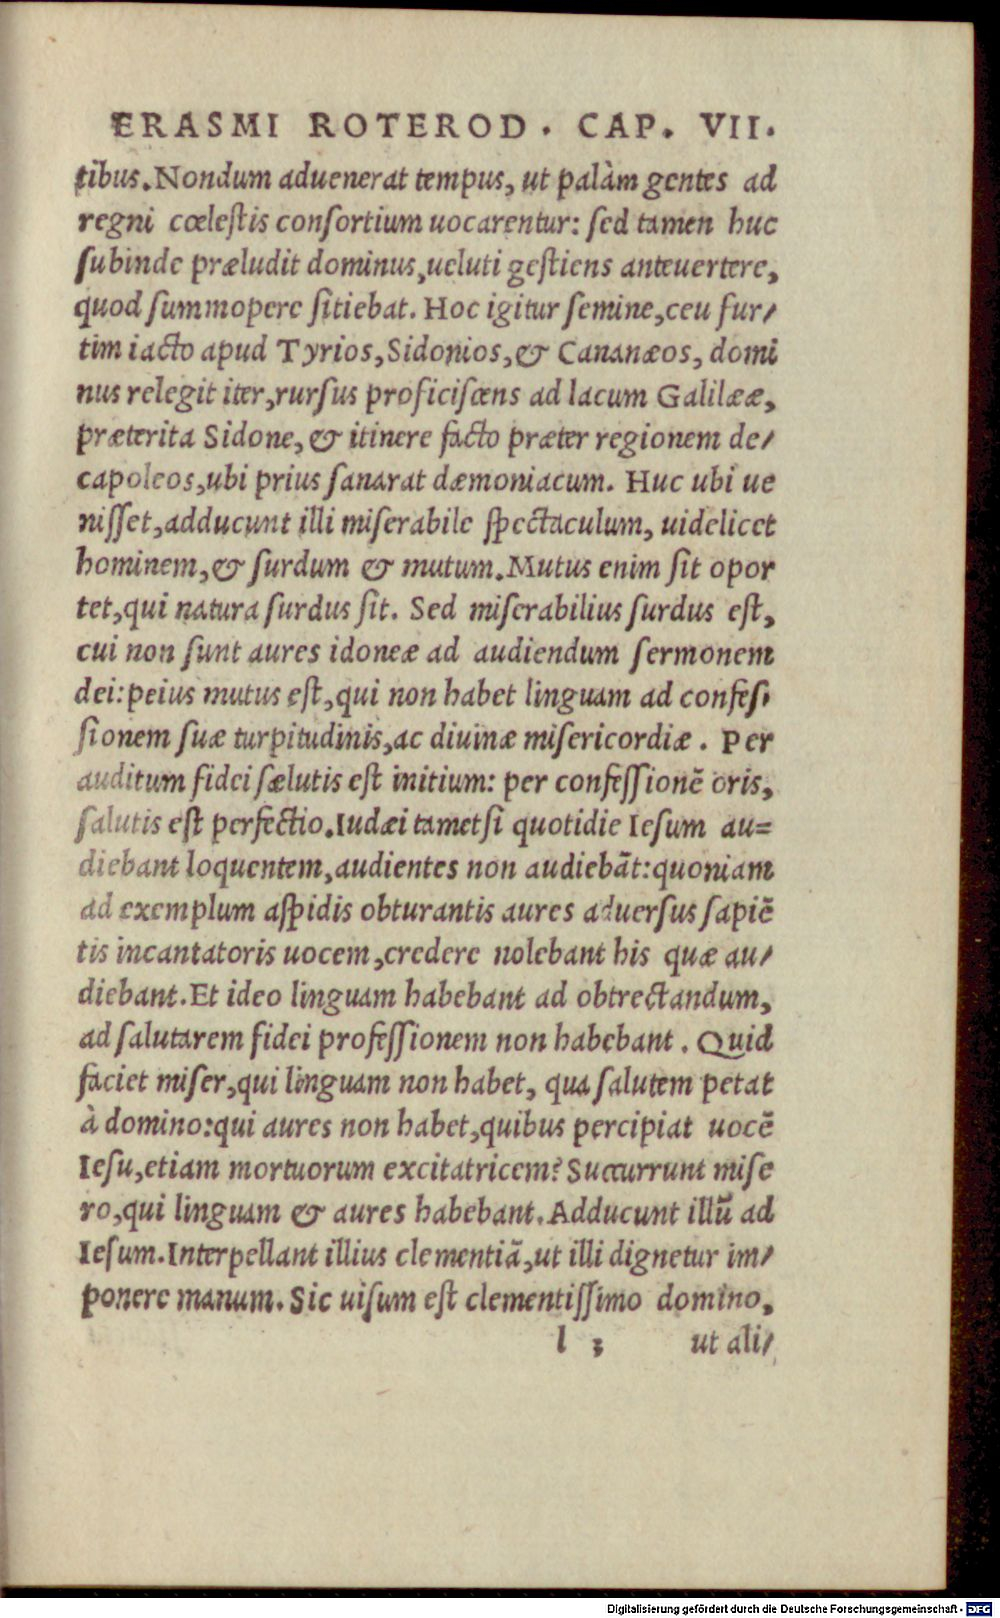 ERASMI ROTEROD. CAP. VII.
tibus. Nondum aduenerat tempus, ut palàm gentes ad
regni cœlestis consortium uocarentur: sed tamen huc
subinde præludit dominus, ueluti gestiens anteuertere,
quod summopere sitiebat. Hoc igitur semine, ceu fur/
tim iacto apud Tyrios, Sidonios, & Cananæos, domi
nus relegit iter, rursus proficiscens ad lacum Galilææ,
præterita Sidone, & itinere facto præter regionem de/
capoleos, ubi prius sanarat dæmoniacum. Huc ubi ue
nisset, adducunt illi miserabile spectaculum, uidelicet
hominem, & surdum & mutum. Mutus enim sit opor
tet, qui natura surdus sit. Sed miserabilius surdus est,
cui non sunt aures idoneæ ad audiendum sermonem
dei: peius mutus est, qui non habet linguam ad confes/
sionem suæ turpitudinis, ac diuinæ misericordiæ. Per
auditum fidei sælutis est initium: per confessionē oris,
salutis est perfectio. Iudæi tametsi quotidie Iesum au=
diebant loquentem, audientes non audiebāt: quoniam
ad exemplum aspidis obturantis aures aduersus sapiē
tis incantatoris uocem, credere nolebant his quæ au/
diebant. Et ideo linguam habebant ad obtrectandum,
ad salutarem fidei professionem non habebant. Quid
faciet miser, qui linguam non habet, qua salutem petat
à domino: qui aures non habet, quibus percipiat uocē
Iesu, etiam mortuorum excitatricem? Succurrunt mise
ro, qui linguam & aures habebant. Adducunt illū ad
Iesum. Interpellant illius clementiā, ut illi dignetur im/
ponere manum. Sic uisum est clementissimo domino,
l 3 ut ali/
Digitalisierung gefördert durch die Deutsche Forschungsgemeinschaft - DFG